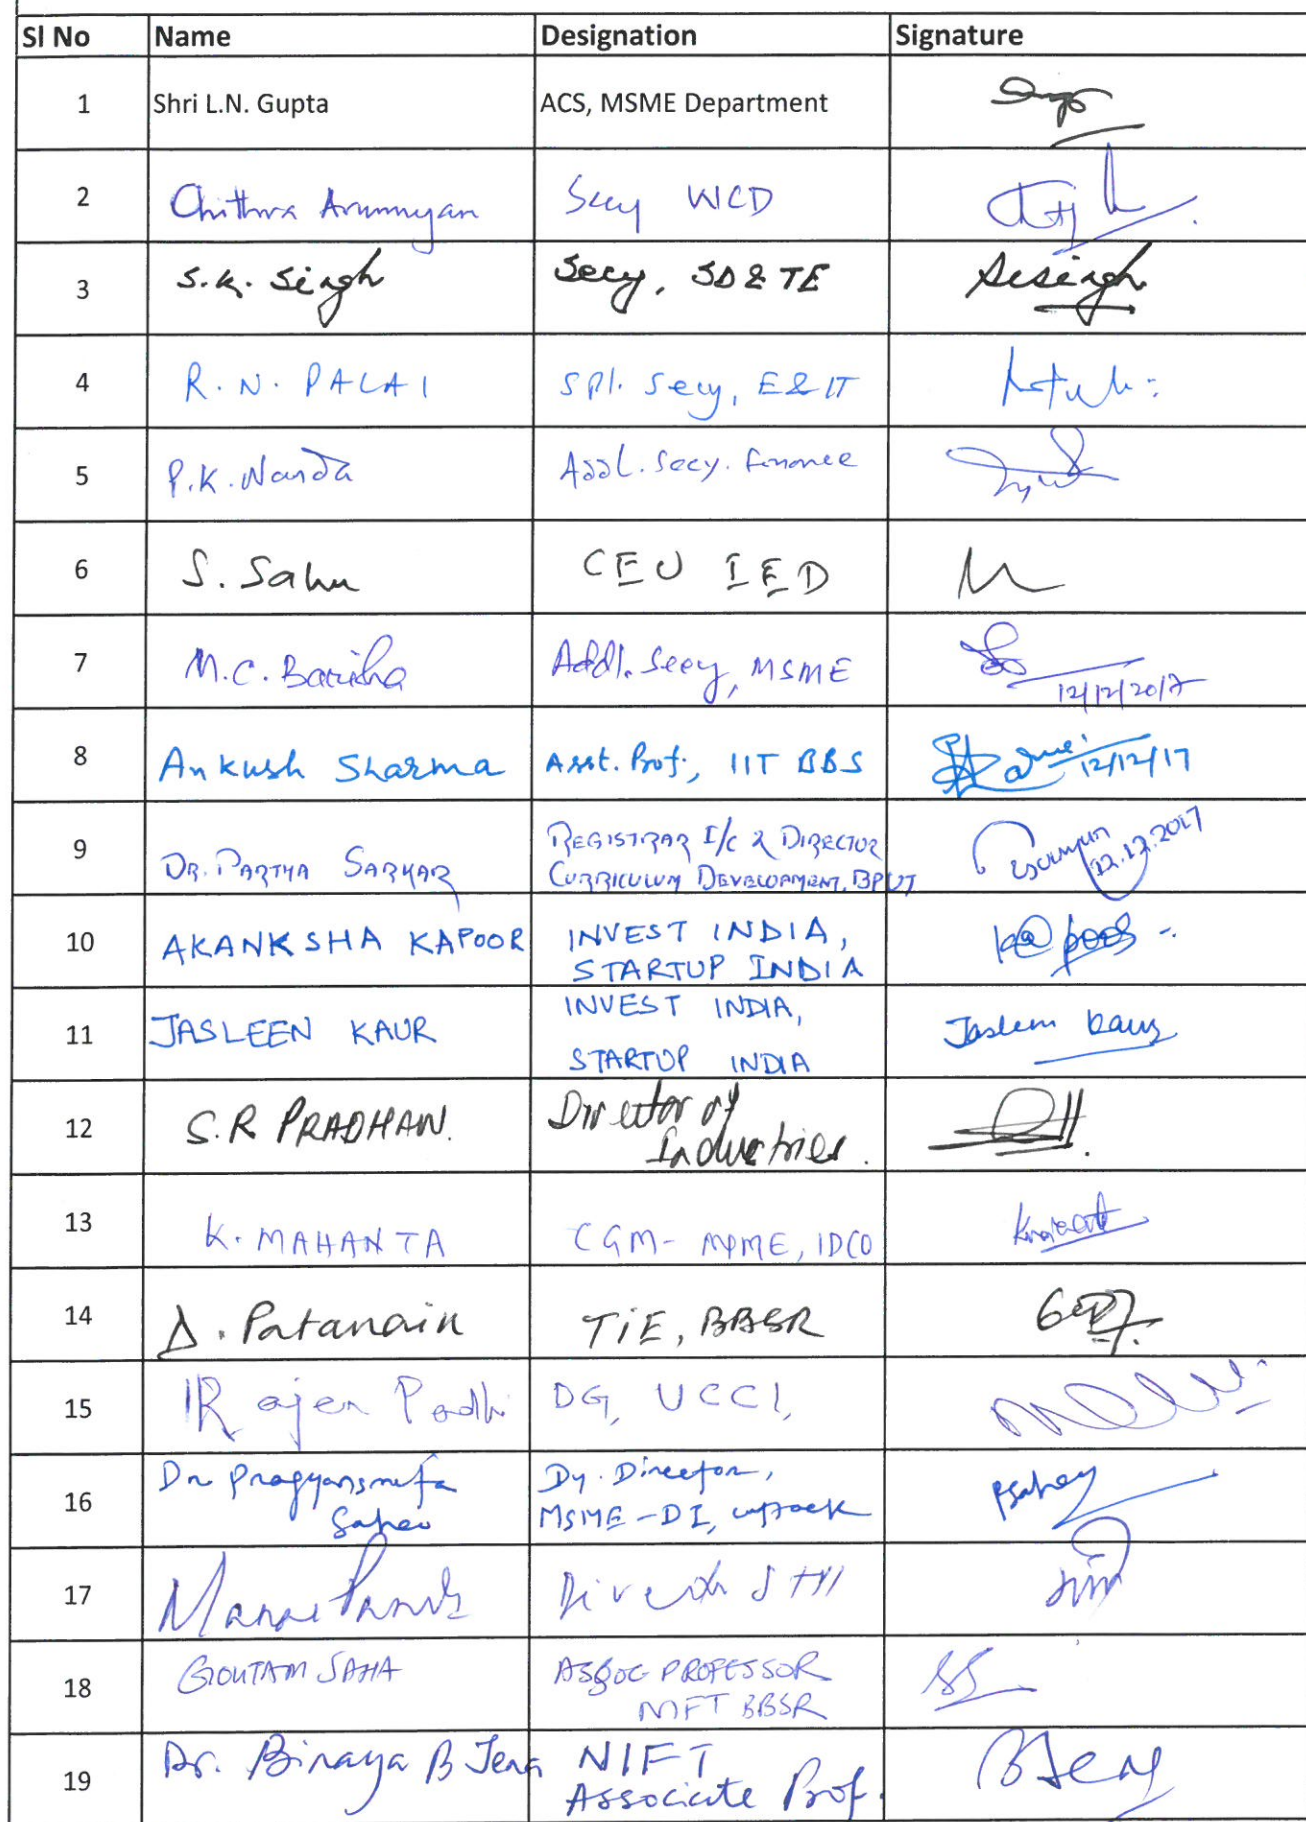 Sl No Name Designation Signature
1 Shri L.N. Gupta ACS, MSME Department
2 Chithra Arumugam Secy WCD
3 S.K. Singh Secy, SD & TE SKSingh
4 R. N. PALAI Spl. Secy, E & IT
5 P.K. Nanda Addl. Secy. Finance
6 S. Sahu CEO IED
7 M.C. Barik Addl. Secy, MSME
12/12/2017
8 Ankush Sharma Asst. Prof., IIT BBS 12/12/17
9 DR. PARTHA SARKAR REGISTRAR I/c & DIRECTOR
CURRICULUM DEVELOPMENT, BPUT
12.12.2017
10 AKANKSHA KAPOOR INVEST INDIA,
STARTUP INDIA
Kapoor
11 JASLEEN KAUR INVEST INDIA,
STARTUP INDIA
Jasleen Kaur
12 S.R PRADHAN. Director of
Industries.
13 K. MAHANTA CGM- MSME, IDCO
14 D. Patanaik TiE, BBSR
15 Rajen Padhi DG, UCCI,
16 Dr Pragyansmita
Sahoo
Dy. Director,
MSME-DI, Cuttack
PSahoo
17 Manas Director
18 GOUTAM SAHA ASSOC PROFESSOR
NIFT BBSR
19 Dr. Binaya B Jena NIFT
Associate Prof.
BJena